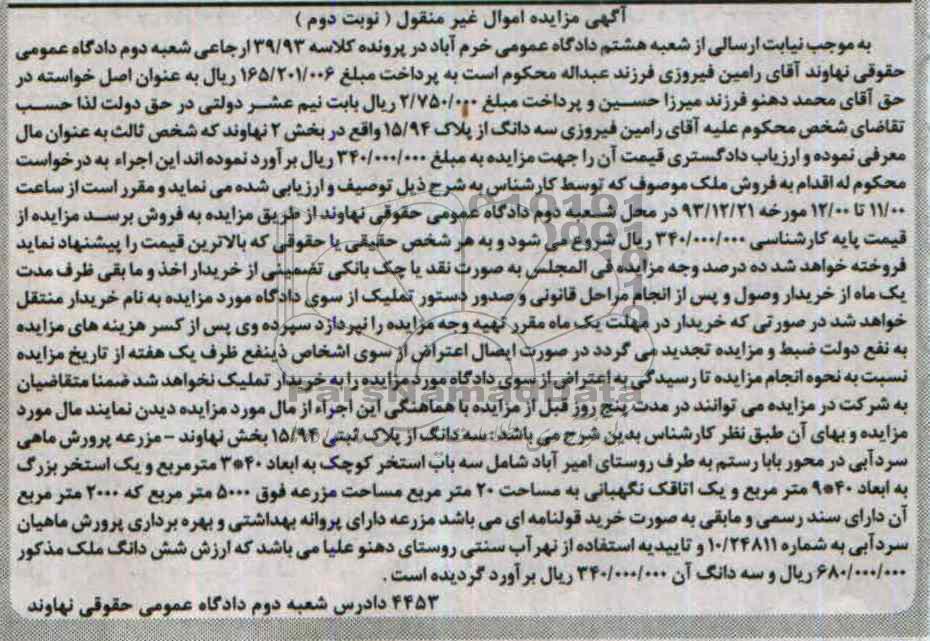 آگهی مزایده اموال غیر منقول ( نوبت دوم )
به موجب نیابت ارسالی از شعبه هشتم دادگاه عمومی خرم آباد در پرونده کلاسه ۳۹/۹۳ ارجاعی شعبه دوم دادگاه عمومی
حقوقی نهاوند آقای رامین فیروزی فرزند عبداله محکوم است به پرداخت مبلغ ۱۶۵/۲۰۱/۰۰۶ ریال به عنوان اصل خواسته در
حق آقای محمد دهنو فرزند میرزا حسین و پرداخت مبلغ ۲/۷۵۰/۰۰۰ ریال بابت نیم عشر دولتی در حق دولت لذا حسب
تقاضای شخص محکوم علیه آقای رامین فیروزی سه دانگ از پلاک ۱۵/۹۴ واقع در بخش ۲ نهاوند که شخص ثالث به عنوان مال
معرفی نموده و ارزیاب دادگستری قیمت آن را جهت مزایده به مبلغ ۳۴۰/۰۰۰/۰۰۰ ریال برآورد نموده اند این اجراء به درخواست
محکوم له اقدام به فروش ملک موصوف که توسط کارشناس به شرح ذیل توصیف و ارزیابی شده می نماید و مقرر است از ساعت
۱۱/۰۰ تا ۱۲/۰۰ مورخه ۹۳/۱۲/۲۱ در محل شعبه دوم دادگاه عمومی حقوقی نهاوند از طریق مزایده به فروش برسد مزایده از
قیمت پایه کارشناسی ۳۴۰/۰۰۰/۰۰۰ ریال شروع می شود و به هر شخص حقیقی یا حقوقی که بالاترین قیمت را پیشنهاد نماید
فروخته خواهد شد ده درصد وجه مزایده فی المجلس به صورت نقد یا چک بانکی تضمینی از خریدار اخذ و ما بقی ظرف مدت
یک ماه از خریدار وصول و پس از انجام مراحل قانونی و صدور دستور تملیک از سوی دادگاه مورد مزایده به نام خریدار منتقل
خواهد شد در صورتی که خریدار در مهلت یک ماه مقرر تهیه وجه مزایده را نپردازد سپرده وی پس از کسر هزینه های مزایده
به نفع دولت ضبط و مزایده تجدید می گردد در صورت ایصال اعتراض از سوی اشخاص ذینفع ظرف یک هفته از تاریخ مزایده
نسبت به نحوه انجام مزایده تا رسیدگی به اعتراض از سوی دادگاه مورد مزایده را به خریدار تملیک نخواهد شد ضمنا متقاضیان
به شرکت در مزایده می توانند در مدت پنج روز قبل از مزایده با هماهنگی این اجراء از مال مورد مزایده دیدن نمایند مال مورد
مزایده و بهای آن طبق نظر کارشناس بدین شرح می باشد : سه دانگ از پلاک ثبتی ۱۵/۹۴ بخش نهاوند - مزرعه پرورش ماهی
سردآبی در محور بابا رستم به طرف روستای امیر آباد شامل سه باب استخر کوچک به ابعاد ۴۰*۳ مترمربع و یک استخر بزرگ
به ابعاد ۴۰*۹ متر مربع و یک اتاقک نگهبانی به مساحت ۲۰ متر مربع مساحت مزرعه فوق ۵۰۰۰ متر مربع که ۲۰۰۰ متر مربع
آن دارای سند رسمی و مابقی به صورت خرید قولنامه ای می باشد مزرعه دارای پروانه بهداشتی و بهره برداری پرورش ماهیان
سردآبی به شماره ۱۰/۲۴۸۱۱ و تاییدیه استفاده از نهر آب سنتی روستای دهنو علیا می باشد که ارزش شش دانگ ملک مذکور
۶۸۰/۰۰۰/۰۰۰ ریال و سه دانگ آن ۳۴۰/۰۰۰/۰۰۰ ریال برآورد گردیده است .
۴۴۵۳ دادرس شعبه دوم دادگاه عمومی حقوقی نهاوند
ParsNamadData